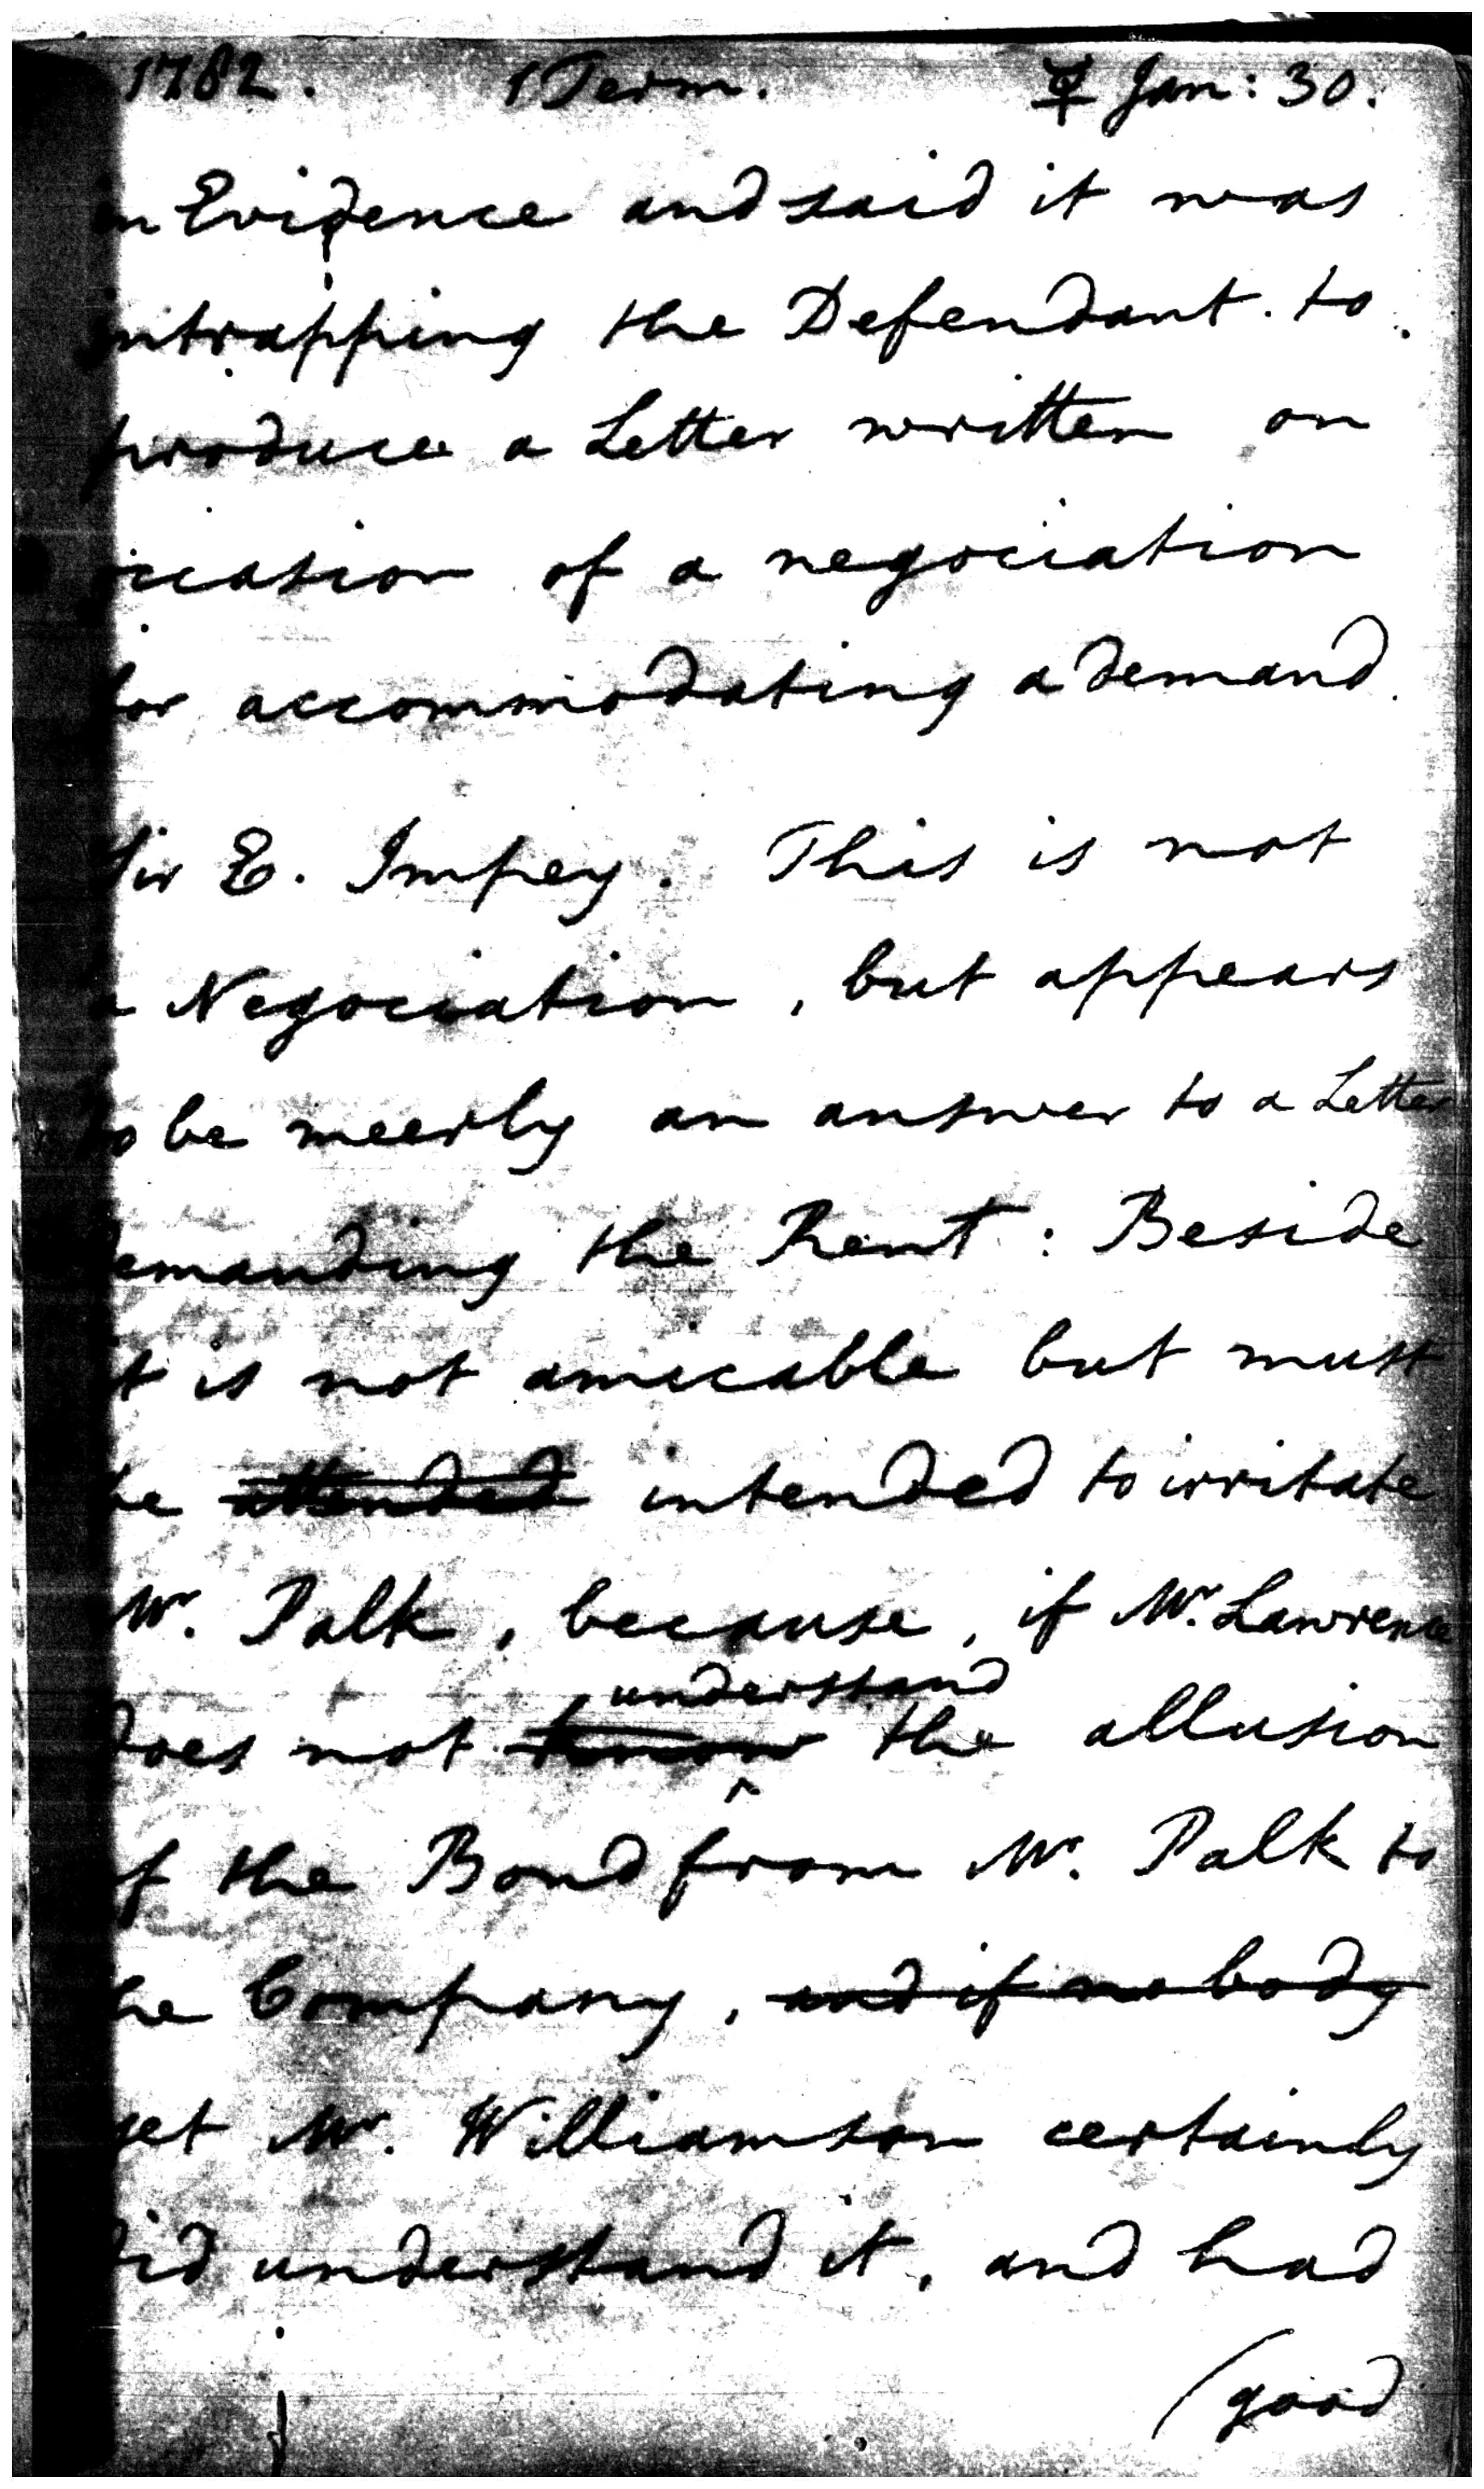 1782. 1 Term. ☿ Jan: 30.
in Evidence and said it was
intrapping the Defendant. to
produce a Letter written on
occasion of a negociation
for accommodating a demand.
Sir E. Impey. This is not
a Negociation, but appears
to be meerly an answer to a Letter
demanding the Rent: Beside
it is not amicable but must
be attended intended to irritate
Mr. Palk, because, if Mr. Lawrence
understand
does not know the allusion
of the Bond from Mr. Palk to
the Company, and if no body
yet Mr. Williamson certainly
did understand it, and had
(good